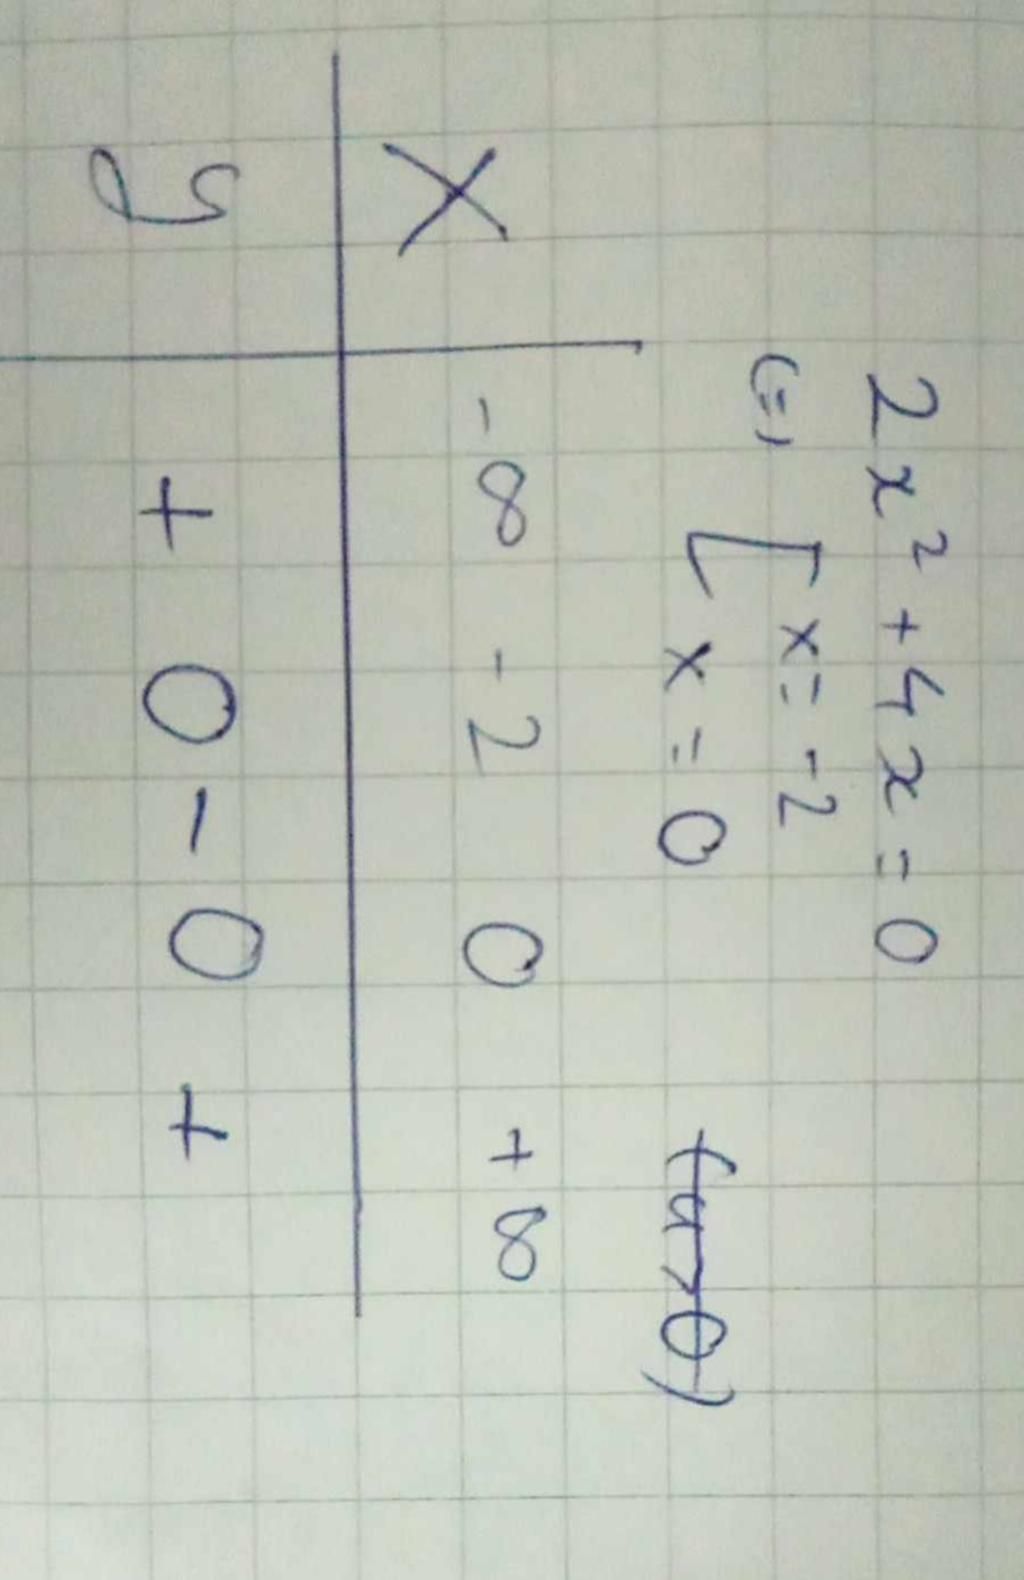 2x² + 4x = 0
(=) [ x = -2
x = 0
(a>0)
X -∞ -2 0 +∞
y + 0 - 0 +